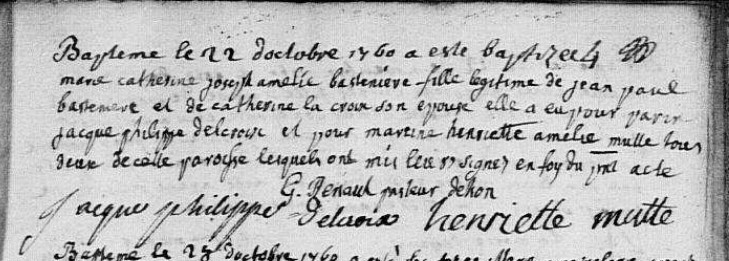 Bapteme le 22 doctobre 1760 a este baptizee
marie catherine joseph amelie basteniere fille legitime de jean paul
basteniere et de catherine la croix son epouse elle a eu pour parin
jacque philippe delcroix et pour mareine henriette amelie mutte tous
deux de cette paroisse lesquels ont mis leurs signes en foy du pnt acte
G. Renaul pasteur de hon
jacque philippe delcroix henriette mutte
Bapteme le 23 doctobre 1760 a esté